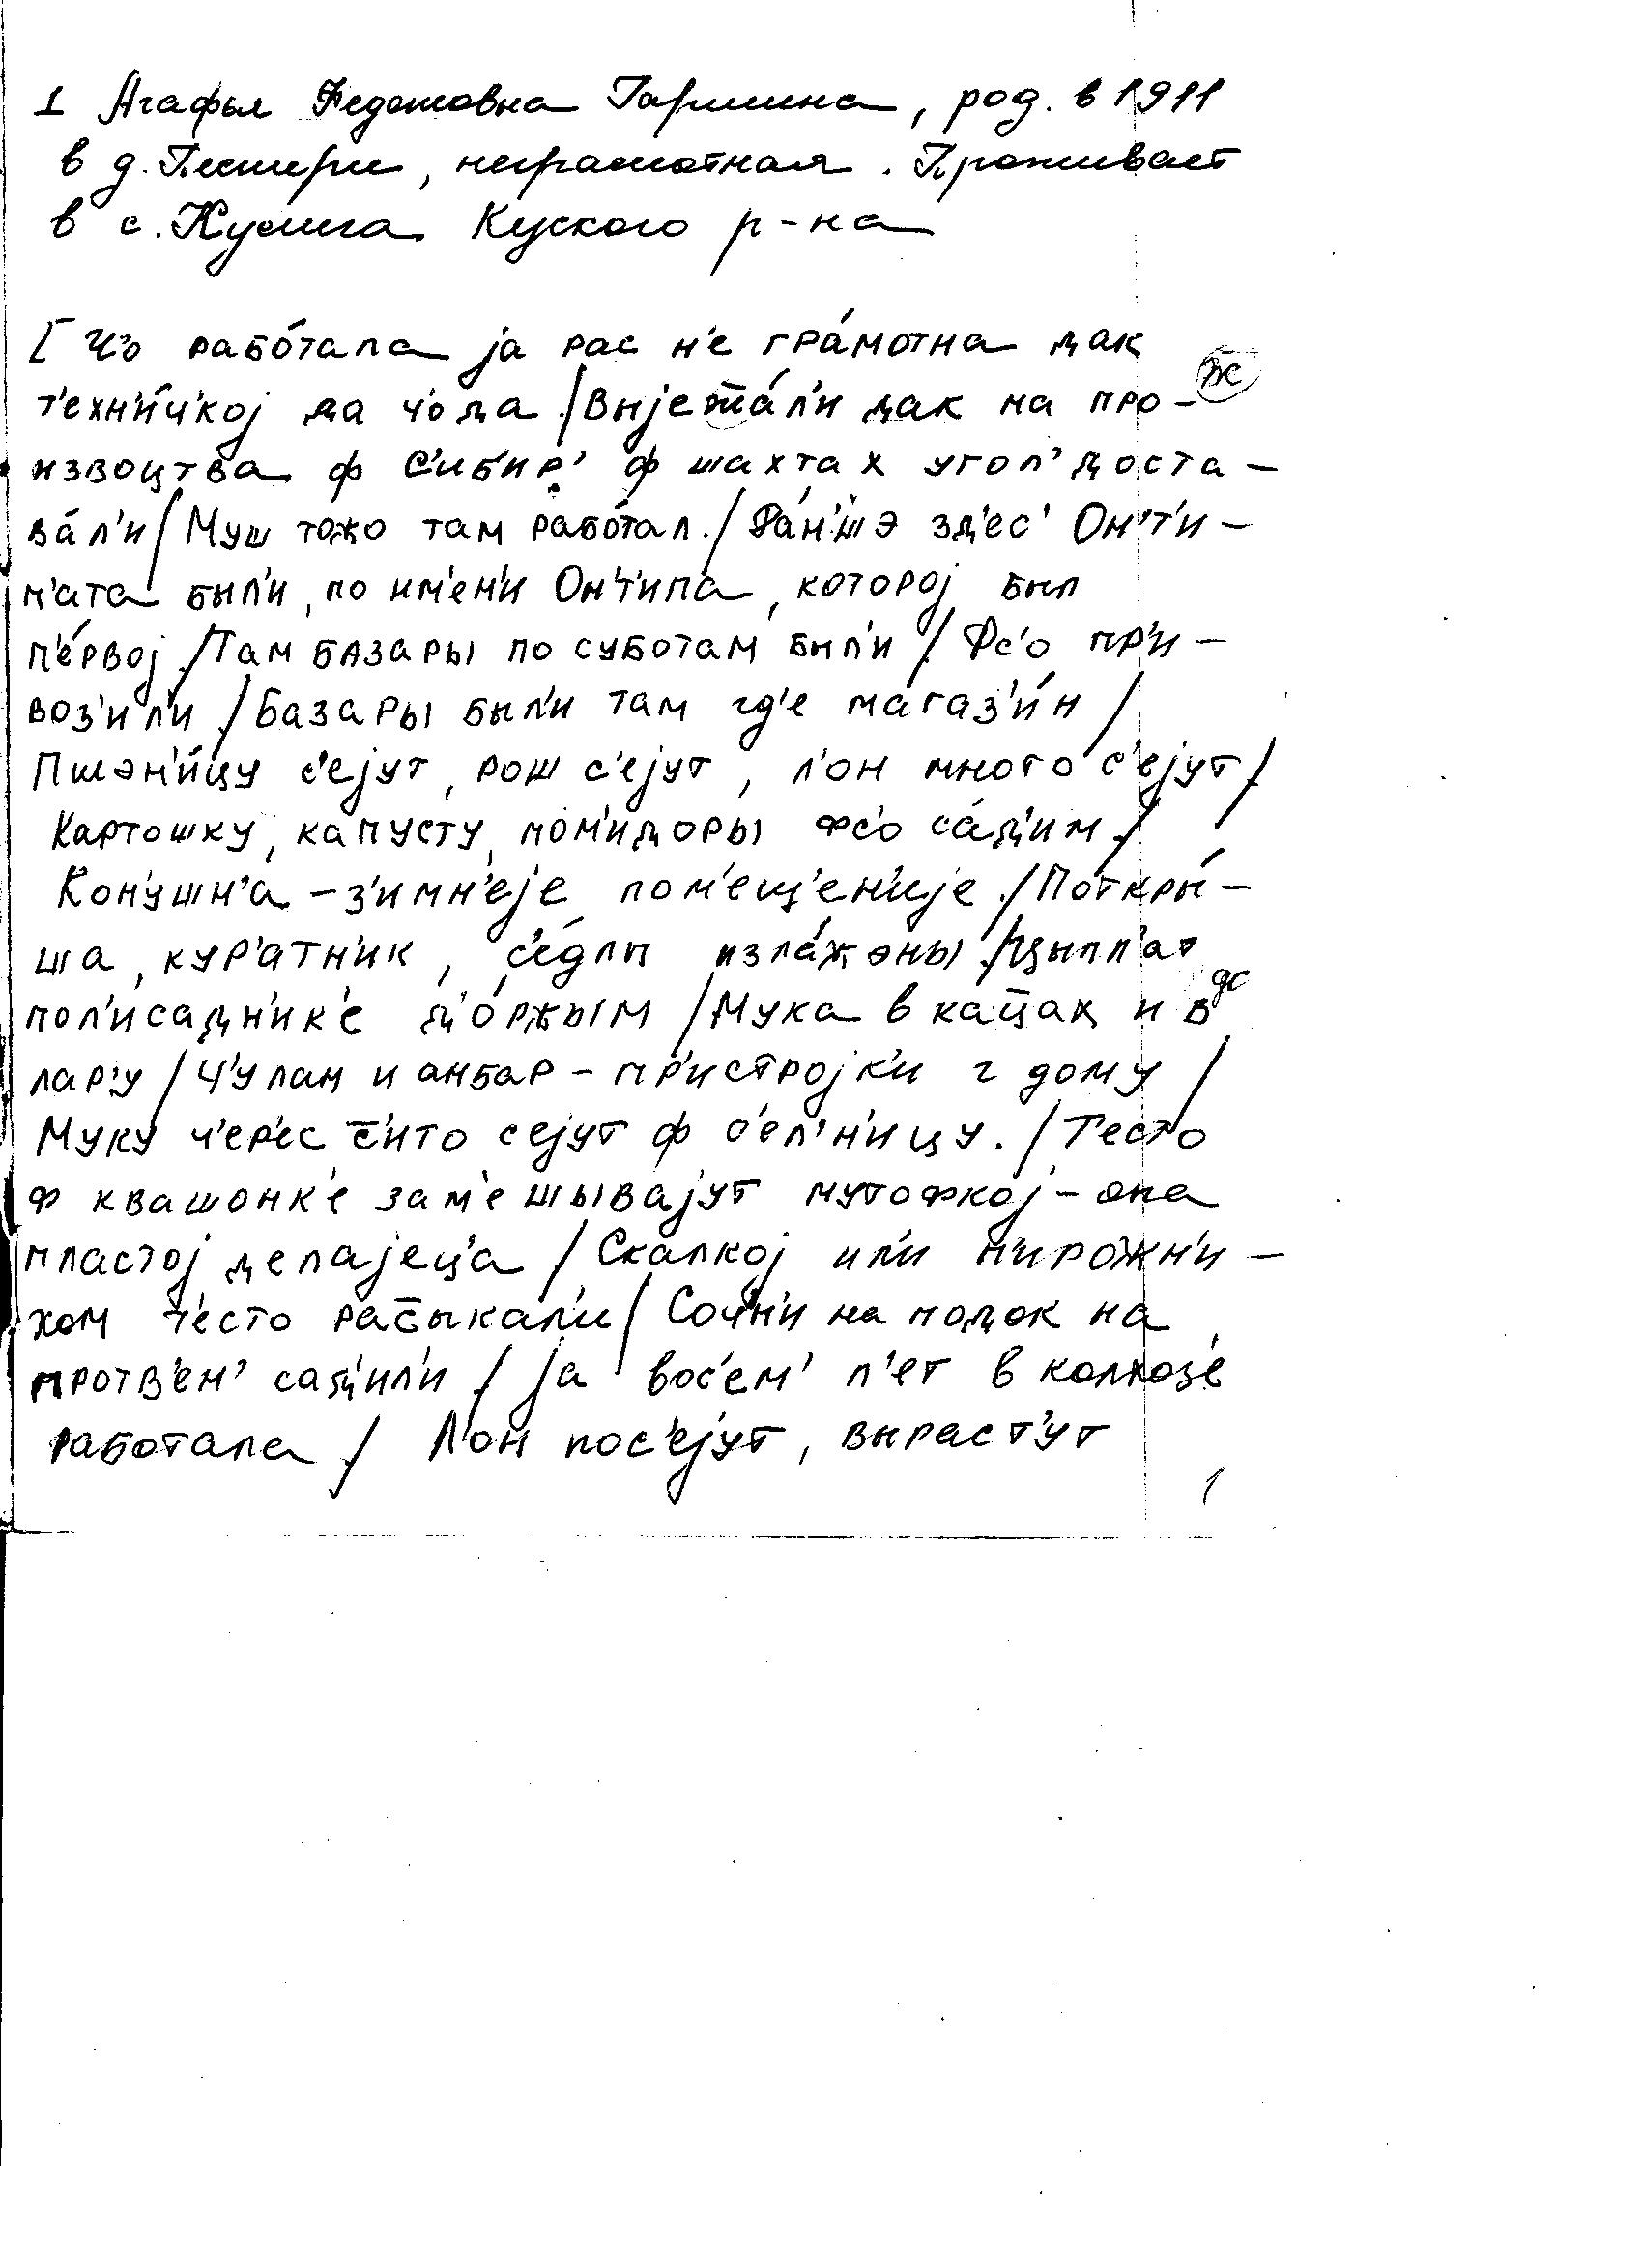 1 Агафья Федотовна Гаршина, род. в 1911
в д. Пестери, неграмотная. Проживает
в с. Кулига Кезского р-на
[ Ч'о рабо́тала jа рас н'е гра́мотна дак
т'ехн'и́ч'коj да ч'о да / Выjежа́л'и дак на про-
ж
извоцтва ф С'иб'ир' ф шахтах угол' доста-
ва́л'и / Муш тожо там рабо́тал. / Ра́н'шэ зд'ес' Он'т'и-
п'ата был'и, по им'ен'и Он'т'ипа, котороj был
п'е́рвоj / Там базары по суботам был'и / Фс'о пр'и-
воз'ил'и / Базары был'и там гд'е магаз'и́н /
Пшэн'и́цу с'еjут, рош с'еjут, л'он много с'еjут /
Картошку, капусту, пом'идоры фс'о са́д'им /
Кон'ушн'а – з'имн'еjе пом'ещ'ен'иjе / Поткры́-
ша, кур'атн'ик, с'е́длы изла́жэны / Цыпл'ат
пол'исадн'ик'е д'о́ржым / Мука в кацах и в
лар'у / Ч'улан и анбар – пр'истроjк'и г дому /
Муку ч'ер'ес с'ито сеjут ф с'ел'н'ицу. / Т'есто
ф квашонк'е зам'ешываjут мутофкоj – она
пластоj делаjеца / Скалкоj ил'и п'ирожн'и-
ком т'есто расыкал'и / Сочн'и на подок на
протв'ен' сад'ил'и / jа вос'ем' л'ет в колхоз'е
работала / Л'он пос'еjут, выраст'ут
1